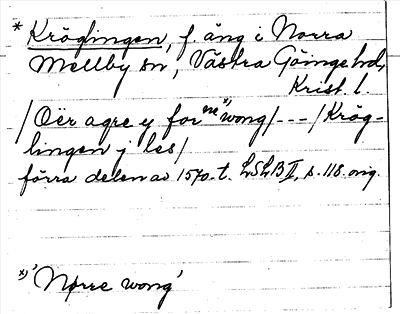 * Kröglingen, f. äng i Norra
Mellby sn, Västra Göinge hd,
Krist. l.
/ Oër agre y for ne x) wong / - - - / Krög-
lingen j les /
förra delen av 1570-t. LSLB II, s. 118. orig.
x) 'Nørre wong'